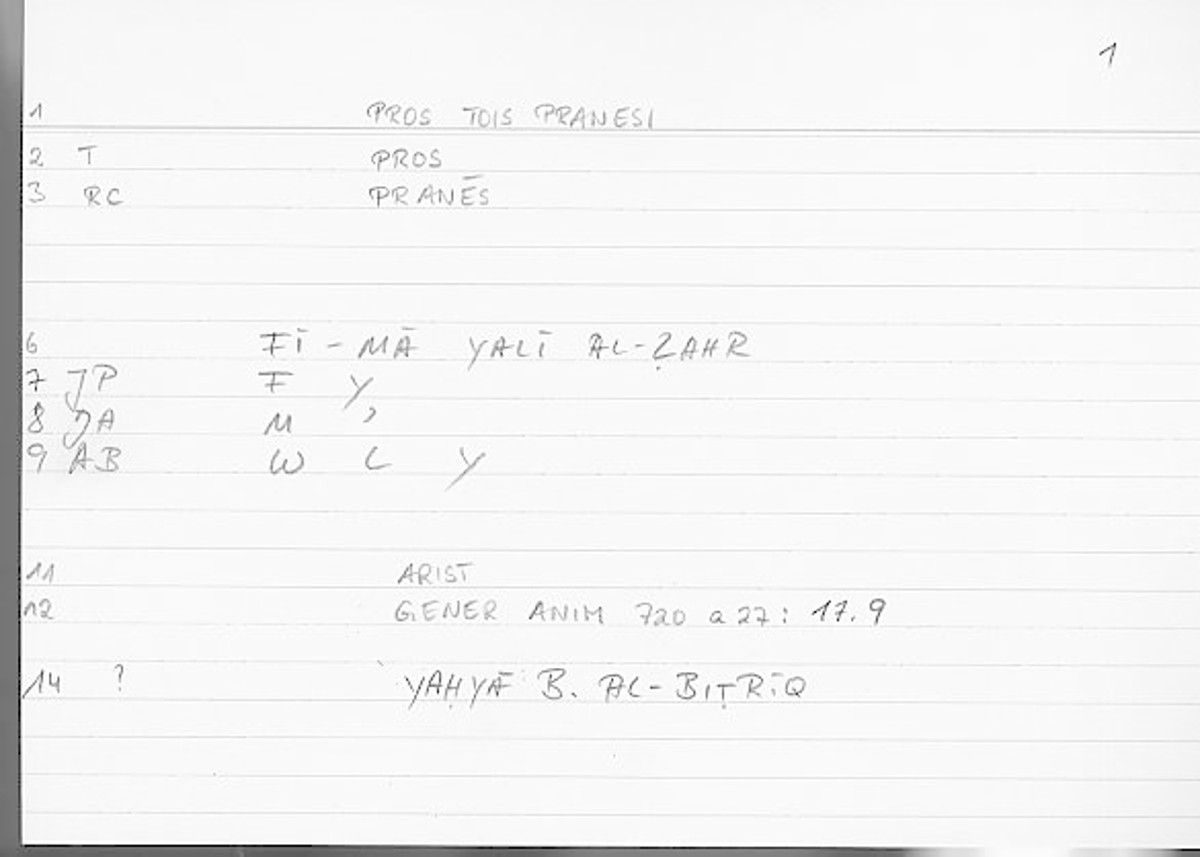 1
1 PROS TOIS PRANESI
2 T PROS
3 RC PRANĒS
6 FĪ-MĀ YALĪ AL-ẒAHR
7 JP F Y,
8 JA M ,
9 AB W L Y
11 ARIST
12 GENER ANIM 720 a 27: 17.9
14 ? YAḤYĀ B. AL-BIṬRĪQ